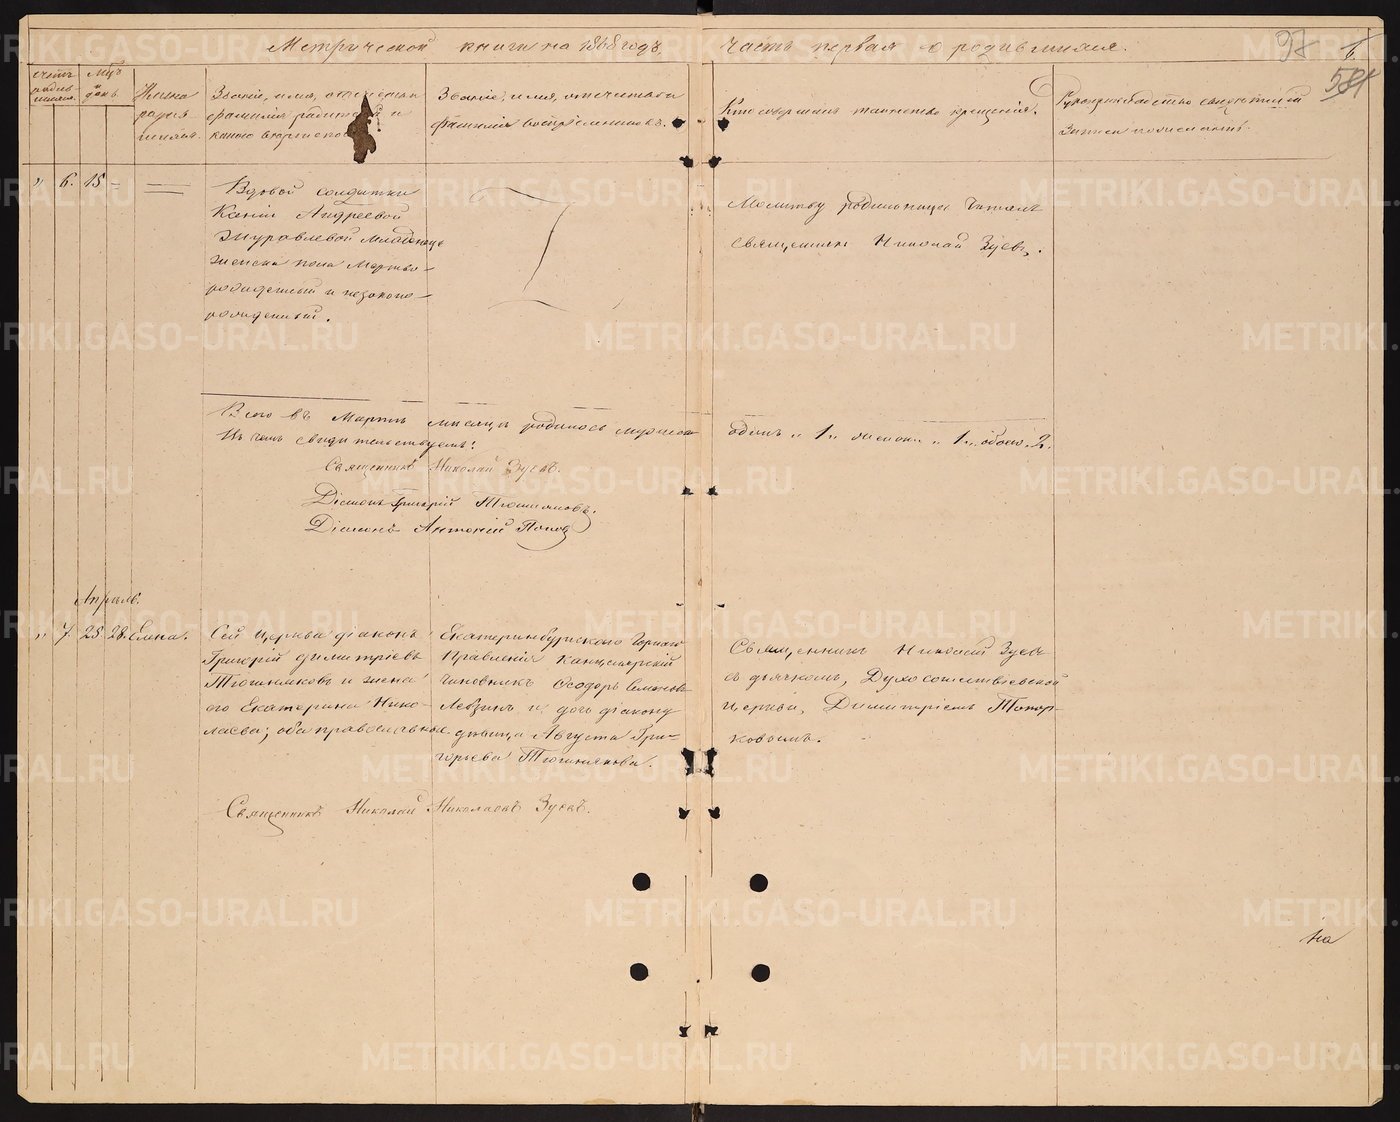 Метрической книги на 1868 годъ часть первая о родившихся.
97
6
581
Счетъ родив-
шихся.
Мцъ
и
день.
Имена
родив
шихся.
Званіе, имя, отчество
фамилія родителей и
какого вѣроиспо
Званіе, имя, отчество и
фамилія воспріемниковъ.
Кто совершалъ таинство крещенія.
Рукоприкладство свидѣтелей
записи по желанію.
" 6. 15 –
Вдовой солдатки
Андреевой
Журавлевой младенецъ
женска пола мертво-
рожденный и незаконо-
рожденный.
Молитву родильницѣ читалъ
священникъ Николай Зуевъ.
Всего въ Мартѣ мѣсяцѣ родилось мужеска одинъ „ 1 „ женска „ 1 „ обоего. 2.
Въ чемъ свидѣтельствуемъ:
Священникъ Николай Зуевъ.
Діаконъ Григорій Тюшняковъ.
Діаконъ Антоній Поповъ
Апрѣль.
" 7. 23. 28. Елена.
Сей церкви діаконъ
Григорій Димитріевъ
Тюшняковъ и жена
его Екатерина Нико-
лаева; оба православные
Екатеринбургскаго Горнаго
Правленія канцелярскій
чиновникъ Ѳеодоръ Семеновъ
и дочь діакона
дѣвица Августа Гри-
горьева Тюшнякова.
Священникъ Николай Зуевъ
съ дьячкомъ, Духосошествіевской
церкви, Димитріемъ Топор-
ковымъ.
Священникъ Николай Николаевъ Зуевъ.
На
METRIKI.GASO-URAL.RU